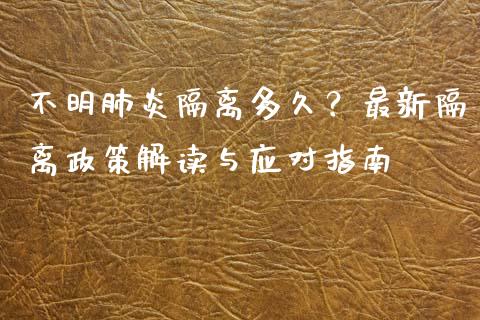 不明肺炎隔离多久？最新隔
离政策解读与应对指南